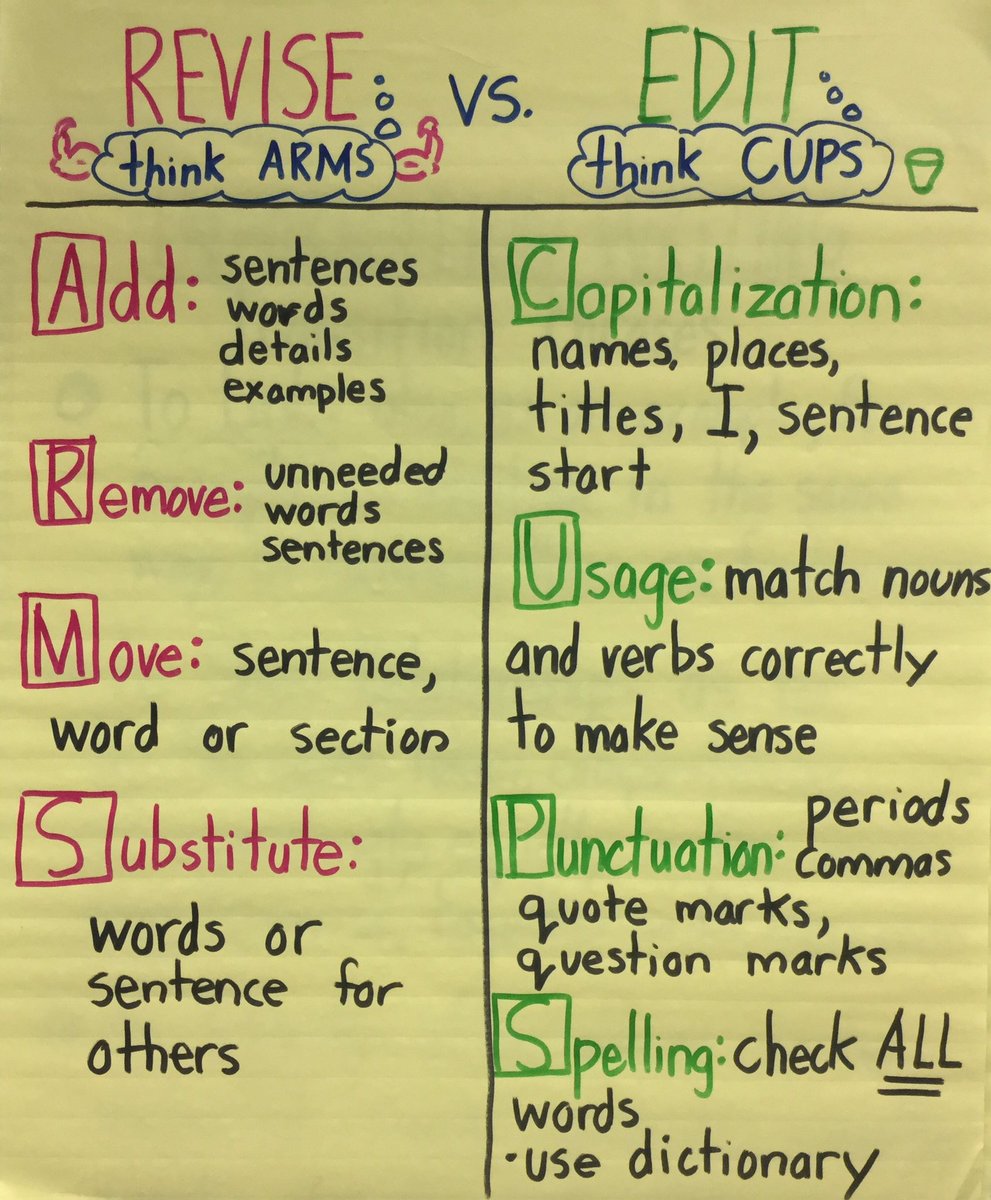 REVISE: VS. EDIT:
think ARMS
think CUPS
Add: sentences
words
details
examples
Remove: unneeded
words
sentences
Move: sentence,
word or section
Substitute:
words or
sentence for
others
Capitalization:
names, places,
titles, I, sentence
start
Usage: match nouns
and verbs correctly
to make sense
Punctuation: periods
commas
quote marks,
question marks
Spelling: check ALL
words
·use dictionary